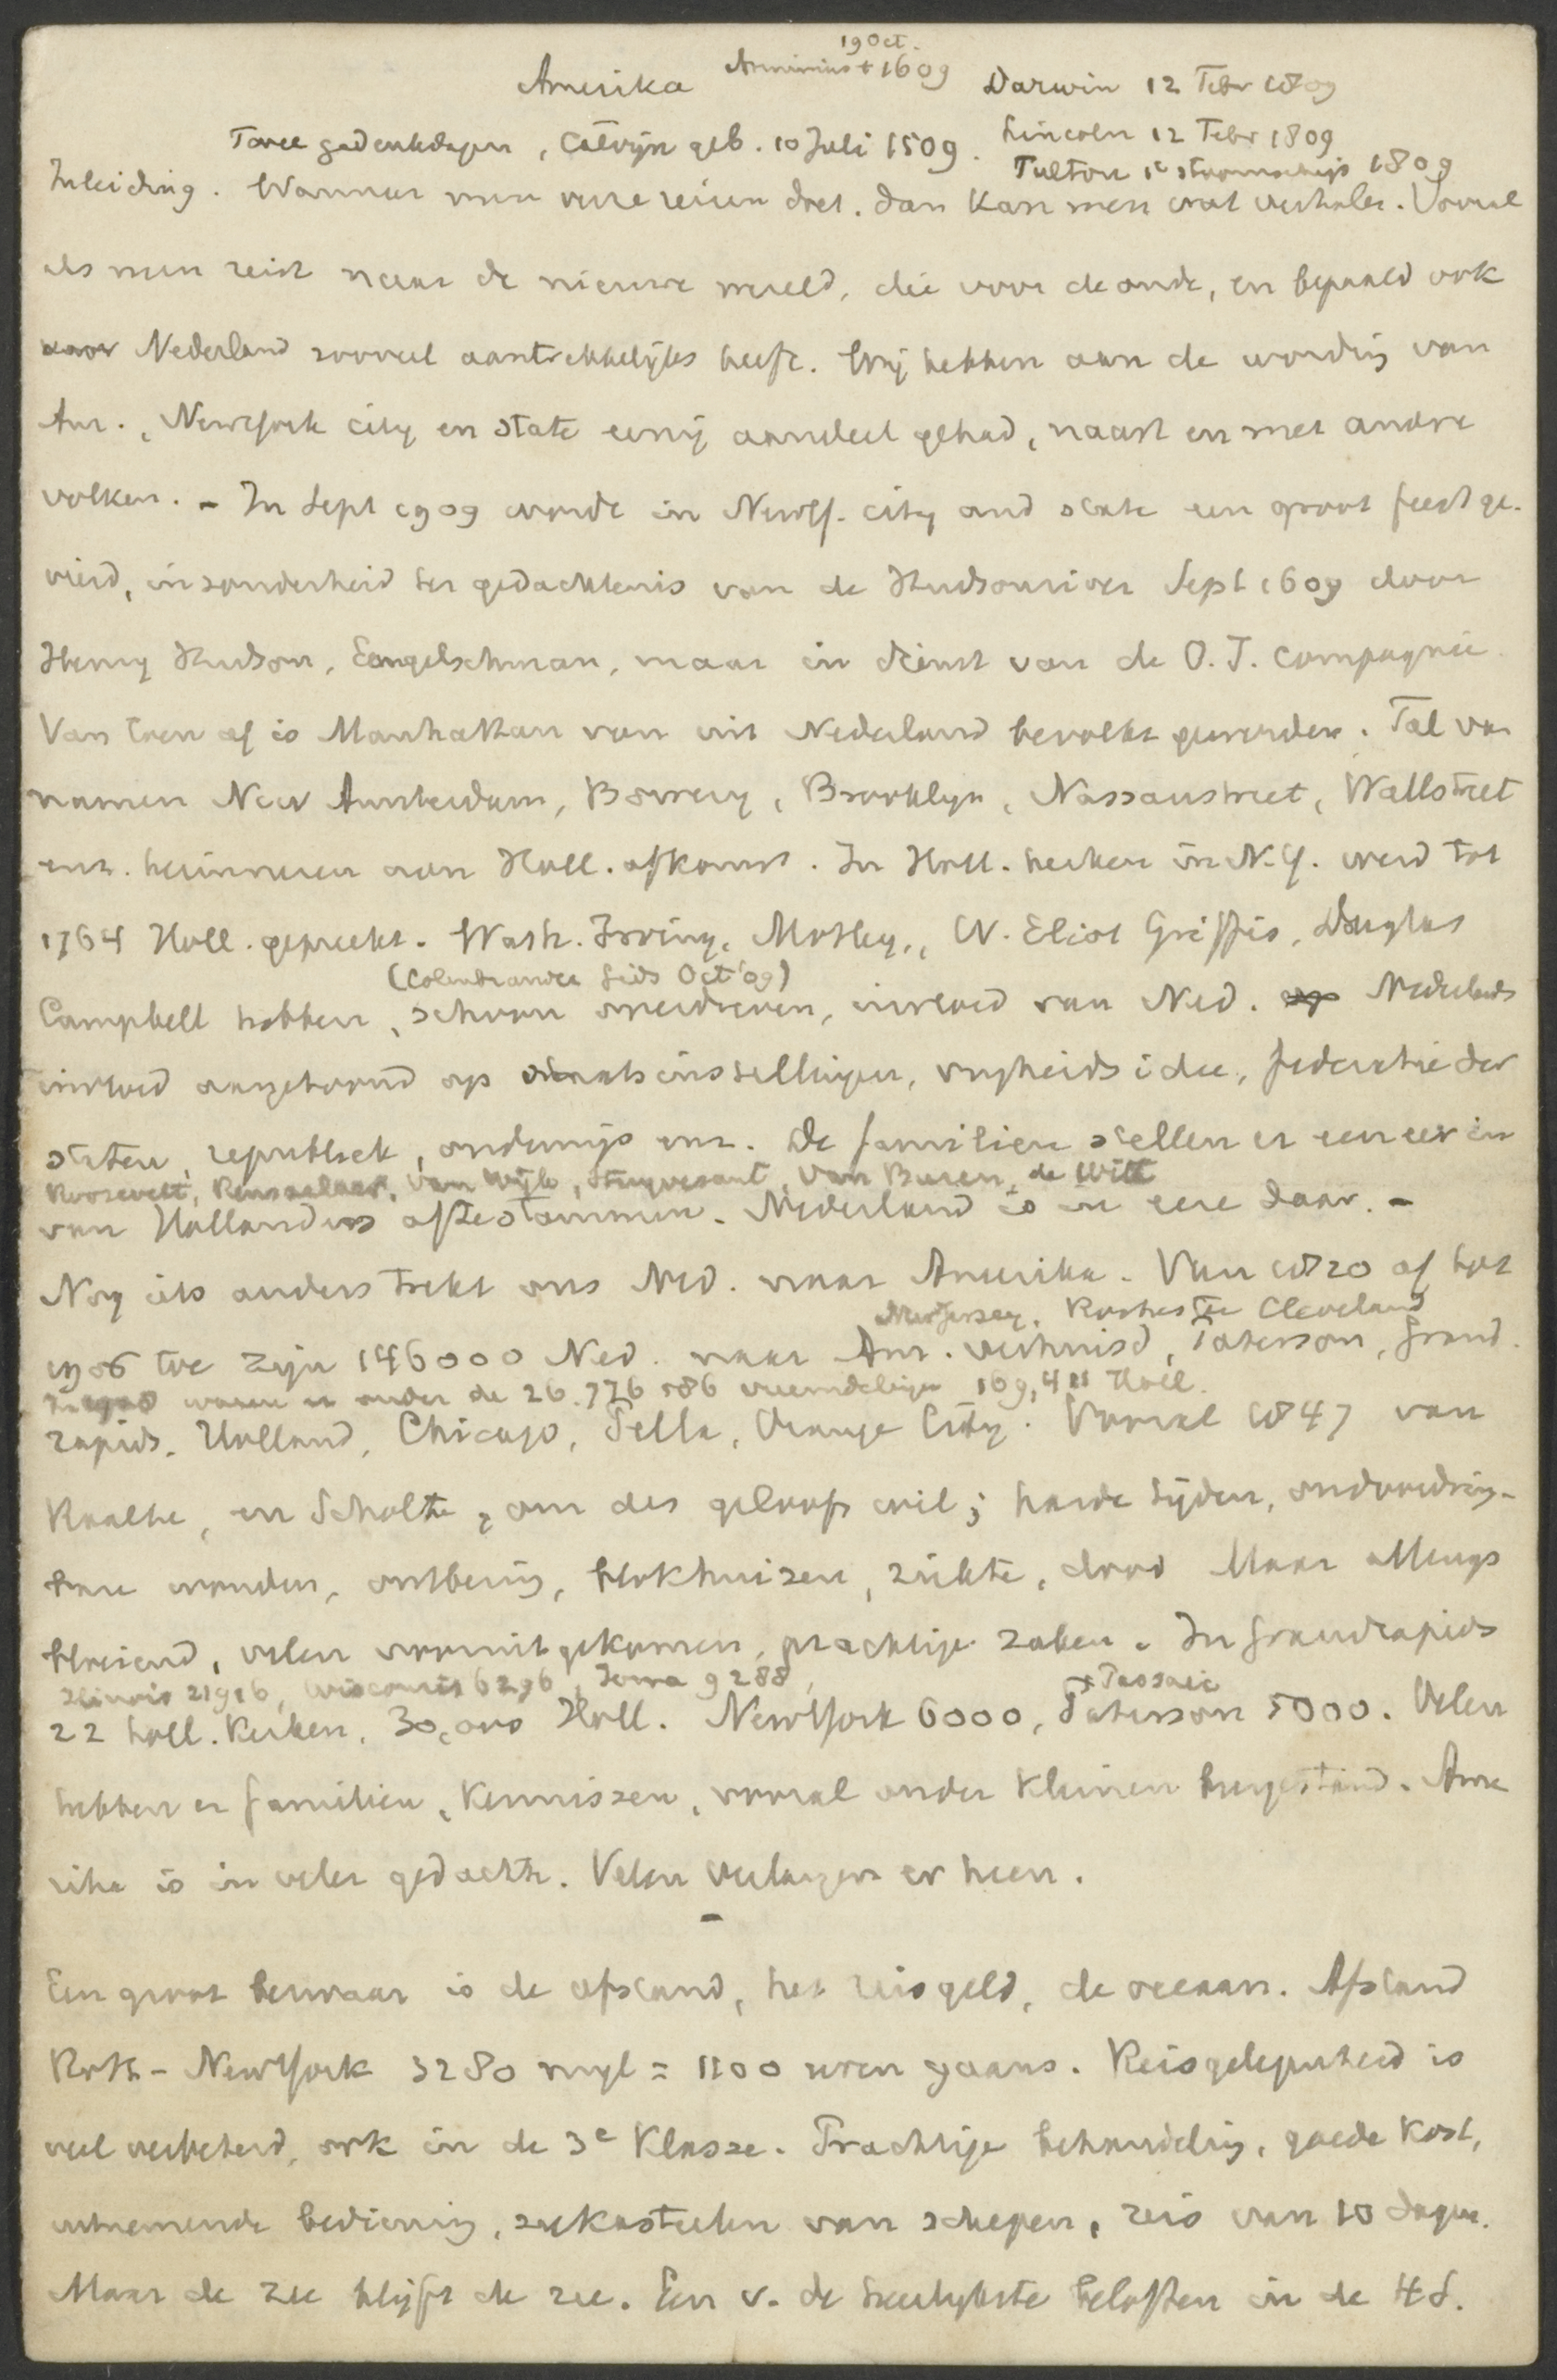 19 Oct.
Amerika Arminius † 1609 Darwin 12 Febr 1809
Twee gedenkdagen, Calvijn geb. 10 Juli 1509. Lincoln 12 Febr 1809
Fulton 1e stoomschip 1809
Inleiding. Wanneer men verre reizen doet. dan kan men wat verhalen. Vooral
als men reist naar de nieuwe wereld, die voor de oude, en bepaald ook
voor Nederland zooveel aantrekkelijks heeft. Wij hebben aan de wording van
Am., NewYork city en state eenig aandeel gehad, naast en met andre
volken. - In Sept 1909 wordt in NewY. city and state een groot feest ge-
vierd, in zonderheid ter gedachtenis van de Hudsonriver Sept 1609 door
Henry Hudson, Engelschman, maar in dienst van de O.I. compagnie.
Van toen af is Manhattan van uit Nederland bevolkt geworden. Tal van
namen New Amsterdam, Bowery, Brooklyn, Nassaustreet, Wallstreet
enz. herinneren aan Holl. afkomst. In Holl. kerken in N.Y. werd tot
1764 Holl. gepreekt. Wash. Irving, Motley, W. Eliot Griffis, Douglas
(Colenbrander Gids Oct '09)
Campbell hebben, schoon overdreven, invloed van Ned. Nederlands
invloed aangetoond op staatsinstellingen, vrijheidsidee, federatie der
staten, republiek, onderwijs enz. De familien stellen er een eer in
Roosevelt, Rensselaer, van Wyk, Stuyvesant, Van Buren, de Witt
van Hollanders af te stammen. Nederland is in eere daar. -
Nog iets anders trekt ons Ned. naar Amerika. Van 1820 af tot
New Jersey. Rochester Cleveland
1906 toe zijn 146000 Ned. naar Am. verhuisd, Paterson, Grand.
In 1900 waren er onder de 26.776 586 vreemdelingen 169,4 Holl.
rapids. Holland, Chicago, Pella, Orange City. Vooral 1847 van
Raalte, en Scholte, om des geloofs wil; harde tijden, ondoordring-
bare wouden, ontbering, blokhuizen, ziekte, dood Maar allengs
bloeiend, velen vooruitgekomen, prachtige zaken. In Grandrapids
Illinois 21916, Wisconsis 6296, Iowa 9288,
+ Passaic
22 holl. kerken, 30,000 Holl. NewYork 6000, Paterson 5000. Velen
hebben er familien, kennissen, vooral onder kleinen burgerstand. Ame
rika is in veler gedachte. Velen verlangen er heen.
-
Een groot bezwaar is de afstand, het reisgeld, de oceaan. Afstand
Rott - NewYork 3280 mijl = 1100 uren gaans. Reisgelegenheid is
veel verbeterd, ook in de 3e klasse. Prachtige behandeling, goede kost,
uitnemende bediening, zeekasteelen van schepen, reis van 10 dagen.
Maar de zee blijft de zee. Een v. de heerlijkste beloften in de H S.